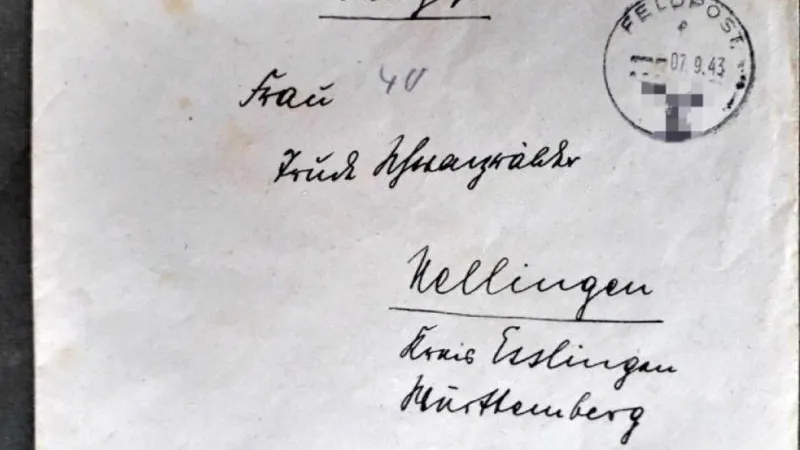 FELDPOST
07.9.43
Frau 40
Trude Schwarzwälder
Nellingen
Kreis Esslingen
Württemberg